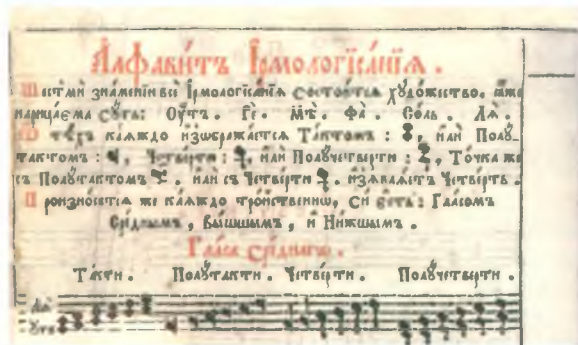 Алфави́тъ І҆рмологїса́нїѧ .
Шестмѝ зна́менїи всѐ І҆рмологїса́нїѧ состои́тсѧ Хꙋдо́жество . ꙗ҆́же
нарица́ема сꙋ́ть : Оу҆́тъ . Ге́ . Мѣ̀ . Фа̀ . Со́ль . Лѧ̀ .
Ѿ тѣ́хъ ка́ѧждо и҆з̾ѡбража́етсѧ Та́ктомъ : , и҆лѝ Полꙋ-
та́ктомъ : , Че́тверти : , и҆лѝ Полꙋче́тверти : , То́чка же
съ Полꙋта́ктомъ . и҆лѝ съ Че́тверти . и҆з̾ѧвлѧ́етъ Че́тверть .
Произно́ситсѧ же ка́ѧждо тро́йственнѡ , сѝ е҆́сть : Гла́сомъ
Сре́днымъ , Вы́шшымъ , и҆ Ни́жшымъ .
Гла́са сре́днѧгѡ .
Та́кти . Полꙋта́кти . Че́тверти . Полꙋче́тверти .
Оу҆́тъ